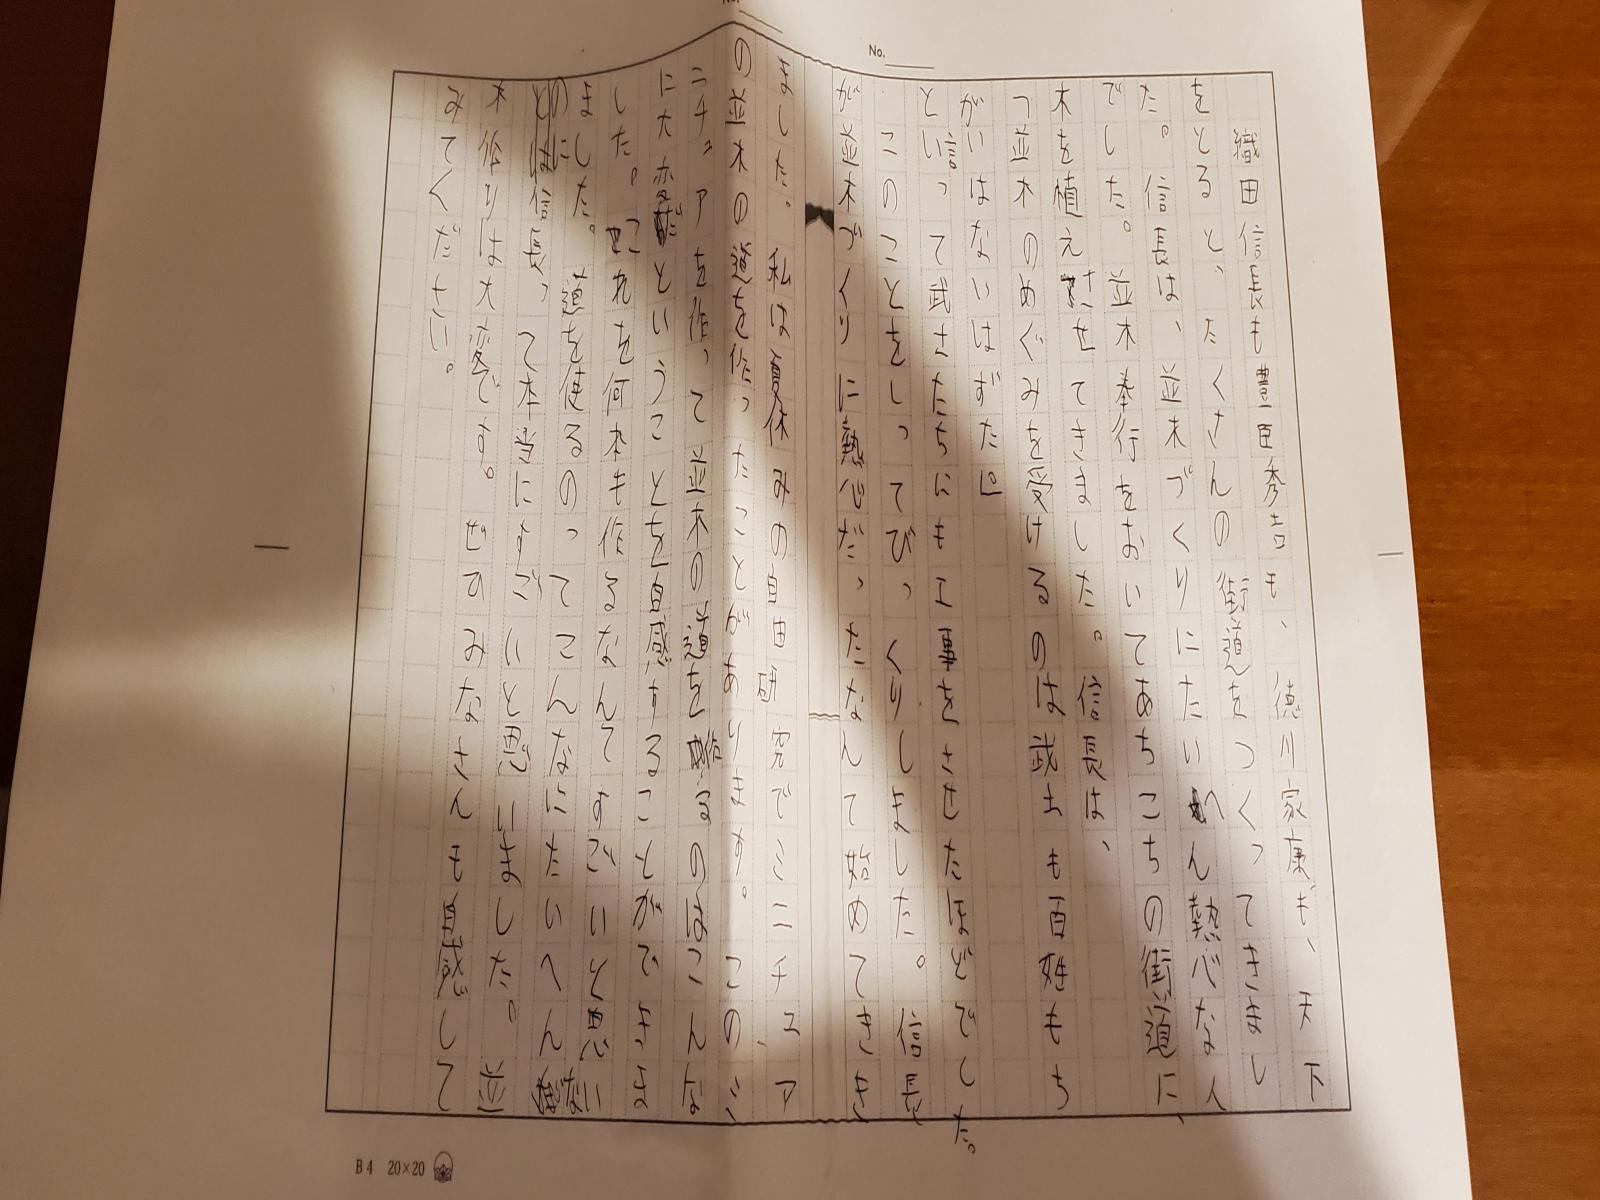 No.
No.
織田信長も豊臣秀吉も、徳川家康も、天下
をとると、たくさんの街道をつくってきまし
た。信長は、並木づくりにたいへん熱心な人
でした。並木奉行をおいてあちこちの街道に、
木を植えさせてきました。信長は、
つ並木のめぐみを受けるのは武士も百姓もち
がいはないはずだ」
と信いって武さたちにも工事をさせたほどでした。
このことをしってびっくりしました。信長
が並木づくりに熱心だったなんて始めてきき
ました。私は夏休みの自由研究でミニチュア
の並木の道を作ったことがあります。このミ
ニチュアを作って並木の道を作るのはこんな
に大変だということを自感することができま
した。これを何本も作るなんてすごいと思い
ました。道を使るのってこんなにたいへんな
のに信長って本当にすごいと思いました。並
木作りは大変です。ぜひみなさんも自感して
みてください。
B4 20×20